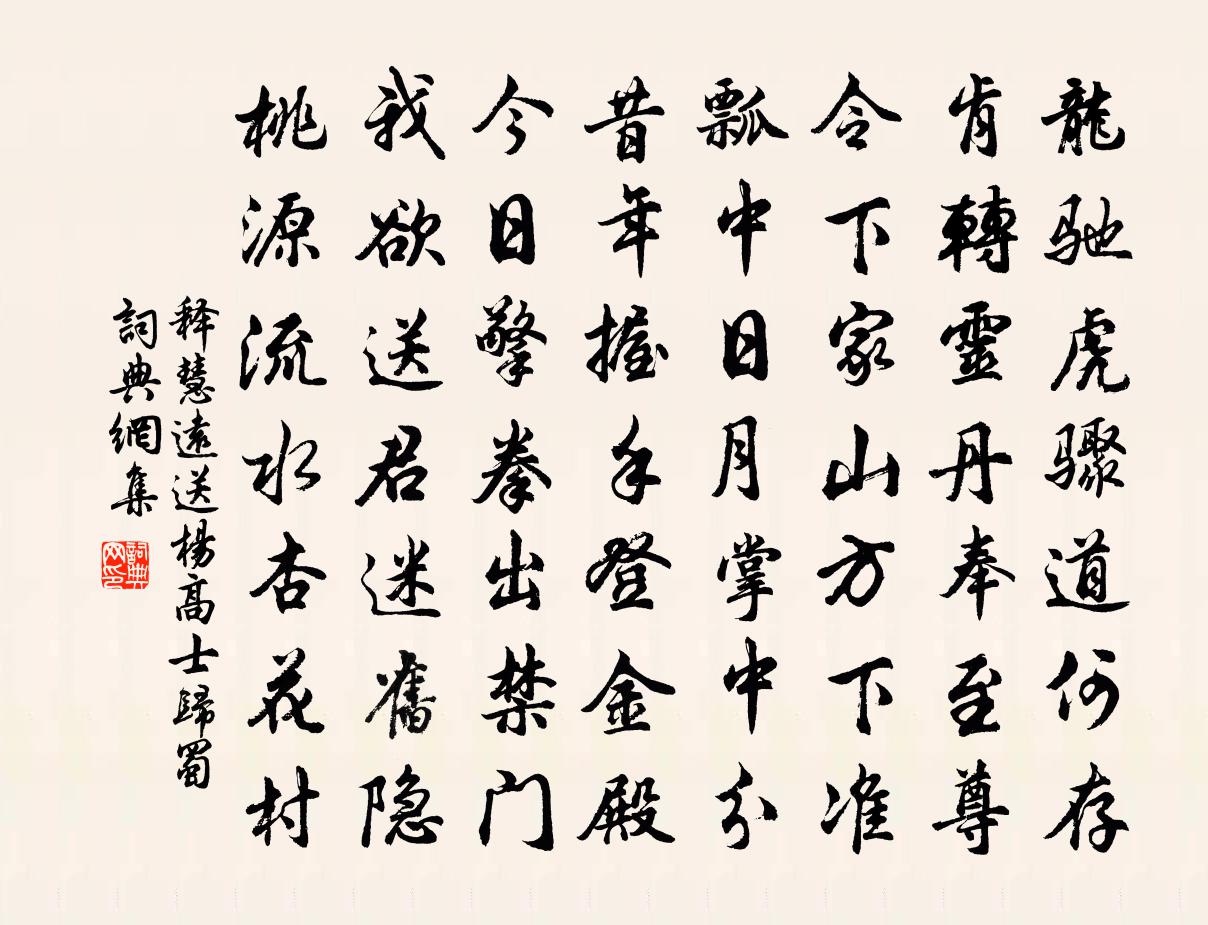 龍驰虎骤道何存
肯轉靈丹奉至尊
令下家山方下准
瓢中日月掌中分
昔年握手登金殿
今日擎拳出禁门
我欲送君迷舊隐
桃源流水杏花村
释慧遠送楊高士歸蜀
詞典網集
詞典
网印